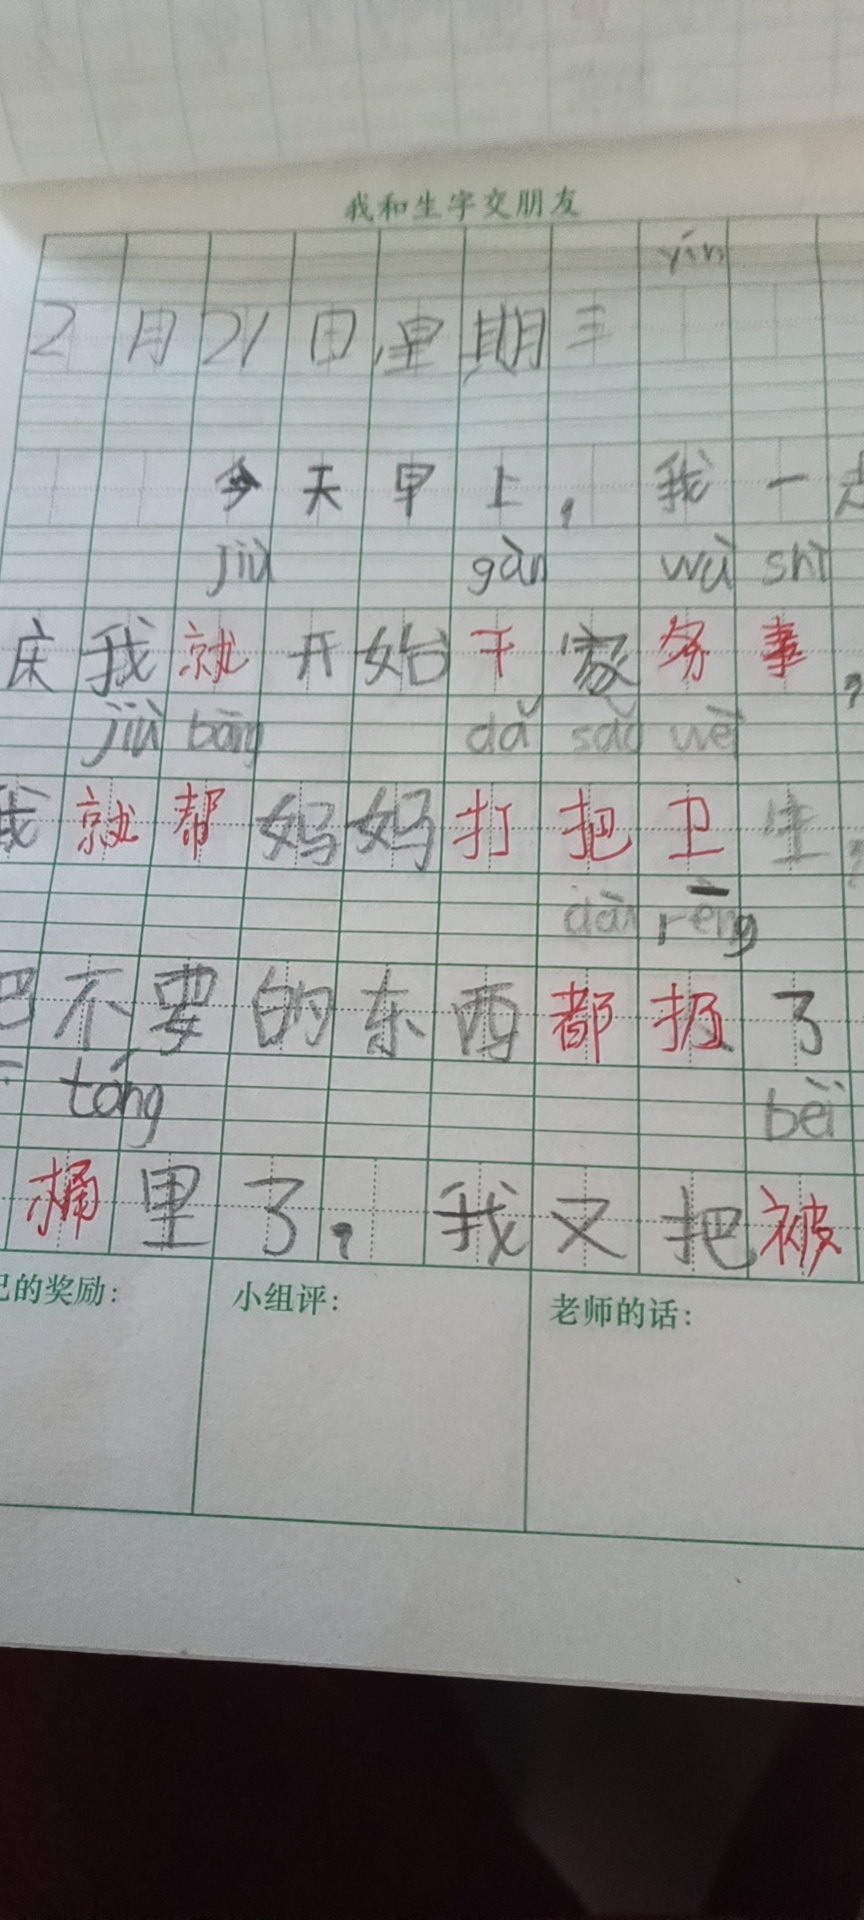 我和生字交朋友
yīn
2月21日星期三
今天早上，我一起
jiù gàn wù shì
床我就开始干家务事，
jiù bāng dǎ sǎo wèi
我就帮妈妈打把卫生，
dān rēng
把不要的东西都扔了
tóng bèi
桶里了，我又把被
己的奖励： 小组评： 老师的话：